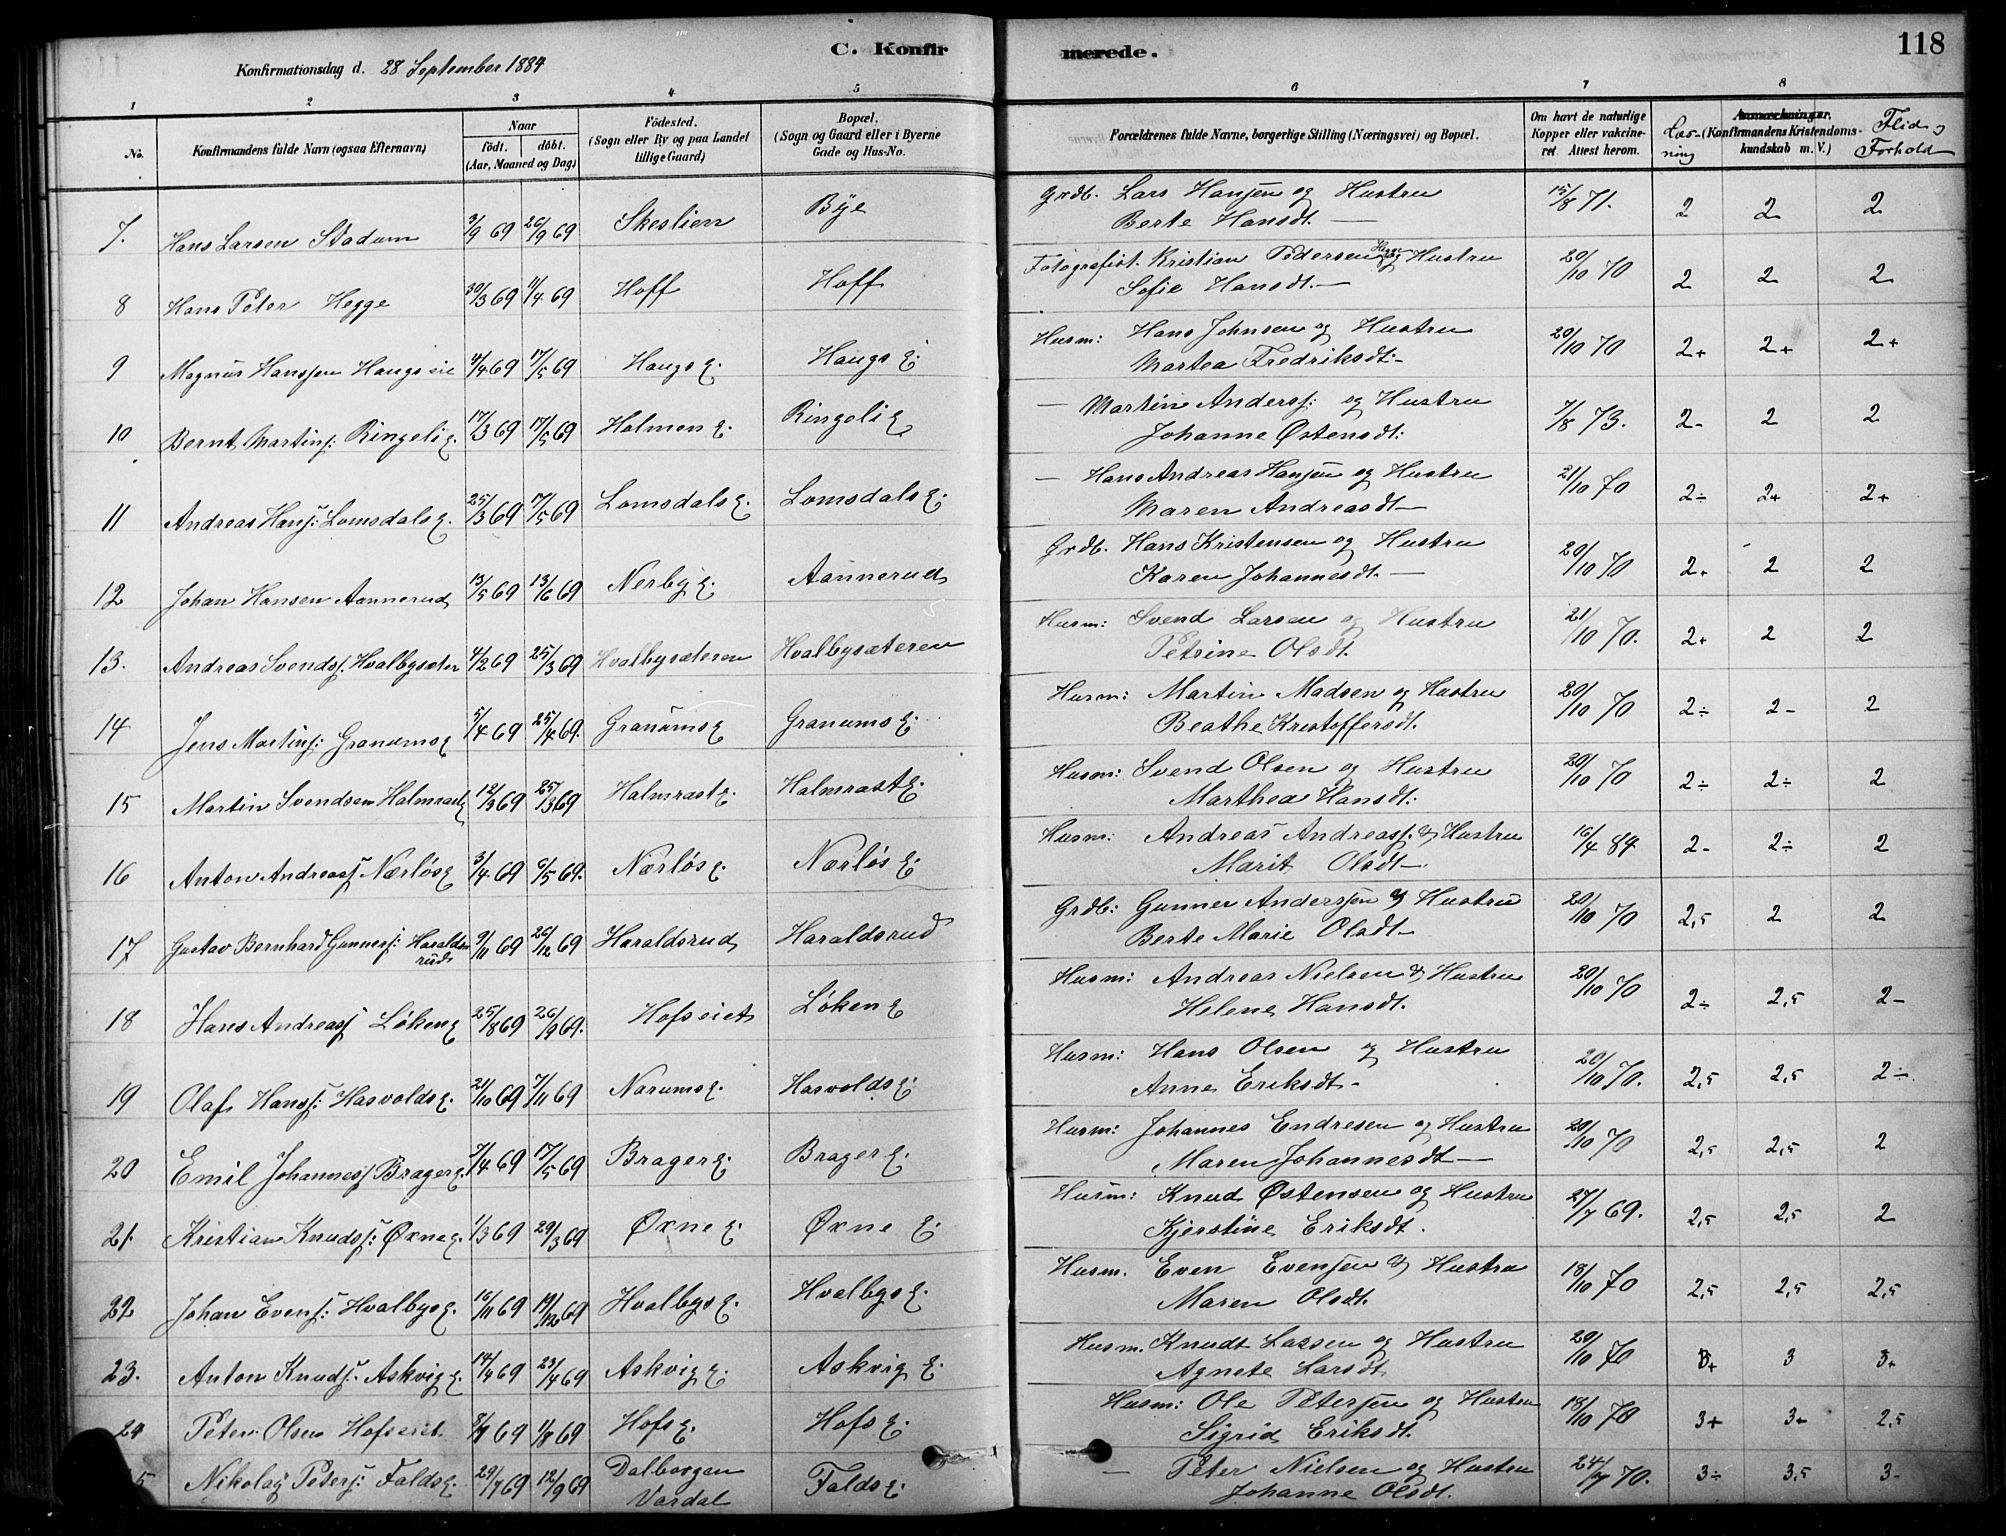 C. Konfirmerede. 118
Konfirmationsdag d. 28 September 1884
1 2 3 4 5 6 7 8
No. Konfirmandens fulde Navn (ogsaa Efternavn) Naar födt. döbt. (Aar, Maaned og Dag) Födested. (Sogn eller By og paa Landet tillige Gaard) Bopæl. (Sogn og Gaard eller i Byerne Gade og Hus-No. Forældrenes fulde Navne, borgerlige Stilling (Næringsvei) og Bopæl. Om havt de naturlige Kopper eller vakcineret Attest herom. Læsning Anmærkninger, (Konfirmandens Kristendomskundskab m. V.) Flid og Forhold
7. Hans Larsen Stadum 3/9 69 26/9 69 Skeslien Bye Grdb. Lars Hansen og Hustru 15/8 71. 2 2 2
Berte Hansdt. —
8 Hans Peter Hegge 30/3 69 11/4 69 Hoff Hoff Fotografist. Kristian Pedersen Hegge og Hustru 20/10 70 2 2 2
Sofie Hansdt. —
9 Magnus Hanssen Haugseie 4/4 69 17/5 69 Haugs E. Haugs E. Husm: Hans Johnsen og Hustru 20/10 70 2+ 2+ 2+
Martea Fredriksdt. -
10 Bernt Martins: Ringeli E. 17/3 69 17/5 69 Holmen E. Ringeli E — Martin Anderss: og Hustru 7/8 73. 2- 2 2
Johanne Østensdt:
11 Andreas Hans: Lomsdals E. 25/3 69 17/5 69 Lomsdals E. Lomsdals E. — Hans Andreas Hansen og Hustru 21/10 70 2÷ 2+ 2+
Maren Andreasdt —
12 Johan Hansen Aannerud 13/5 69 13/6 69 Nerby E. Aannerud Grdb. Hans Kristensen og Hustru 20/10 70 2+ 2 2
Karen Johannesdt. —
13. Andreas Svends: Hvalbysæter 4/2 69 25/3 69 Hvalbysæteren Hvalbysæteren Husm: Svend Larsen og Hustru 21/10 70. 2+ 2 2
Petrine Olsdt.
14 Jens Martins: Granums E 5/4 69 25/4 69. Granums E Granums E. Husm: Martin Madsen og Hustru 20/10 70 2÷ 2- 2
Beathe Kristoffersdt.
15 Martin Svendsen Halmrast E 12/3 69 25/3 69 Halmrast E. Halmrast E. Husm: Svend Olsen og Hustru 20/10 70 2÷ 2÷ 2
Marthea Hansdt:
16 Anton Andreass Nærløs E 3/4 69 6/5 69. Nærløs E. Nærløs E. Husm: Andreas Andreass. & Hustru 16/4 84 2- 2÷ 2
Marit Olsdt —
17 Gustav Bernhard Gunners: Haraldsrud 9/11 69 26/12 69 Haraldsrud Haraldsrud Grdb: Gunner Anderssen & Hustru 20/10 70 2,5 2 2
Berte Marie Olsdt —
18 Hans Andreass Løken E 25/8 69 26/9 69. Hofseiet Løken E Husm: Andreas Nielsen & Hustru 20/10 70 2÷ 2,5 2-
Helene Hansdt.
19 Olaf Hanss: Hasvolds E. 21/10 69 7/11 69 Narums E. Hasvolds E. Husm: Hans Olsen og Hustru 20/10 70. 2,5 2,5 2÷
Anne Eriksdt -
20 Emil Johanness Brager E. 7/4 69 17/5 69 Brager E. Brager E. Husm: Johannes Endresen og Hustru 20/10 70 2,5 2,5 2
Maren Johannesdt —
21. Kristian Knuds: Øxne E. 1/3 69 29/3 69 Øxne E. Øxne E. Husm: Knud Østensen og Hustru 27/7 69. 2,5 2,5 2
Kjerstine Eriksdt.
22. Johan Evens: Hvalbys E. 16/11 69 19/12 69 Hvalbys E. Hvalbys E. Husm. Even Evensen & Hustru 18/10 70 2,5 2,5 2,5
Maren Olsdt.
23. Anton Knuds: Askvig E. 14/4 69 23/4 69 Askvig E. Askvig E Husm. Knudt Larsen og Hustru 20/10 70 3+ 3 3+
Agnete Larsdt
24 Peter Olsen Hofseiet 69 1/8 69 Hofs E. Hofs E. Husm: Ole Petersen og Hustru 18/10 70 3+ 3+ 2,5
Sigrid Eriksdt.
5 Nikolay Peters: Falds E. 29/7 69 12/9 69 Dalborgen Vardal Falds E. — Peter Nielsen og Hustru 24/7 70. 3÷ 3,5 3-
Johanne Olsdt.